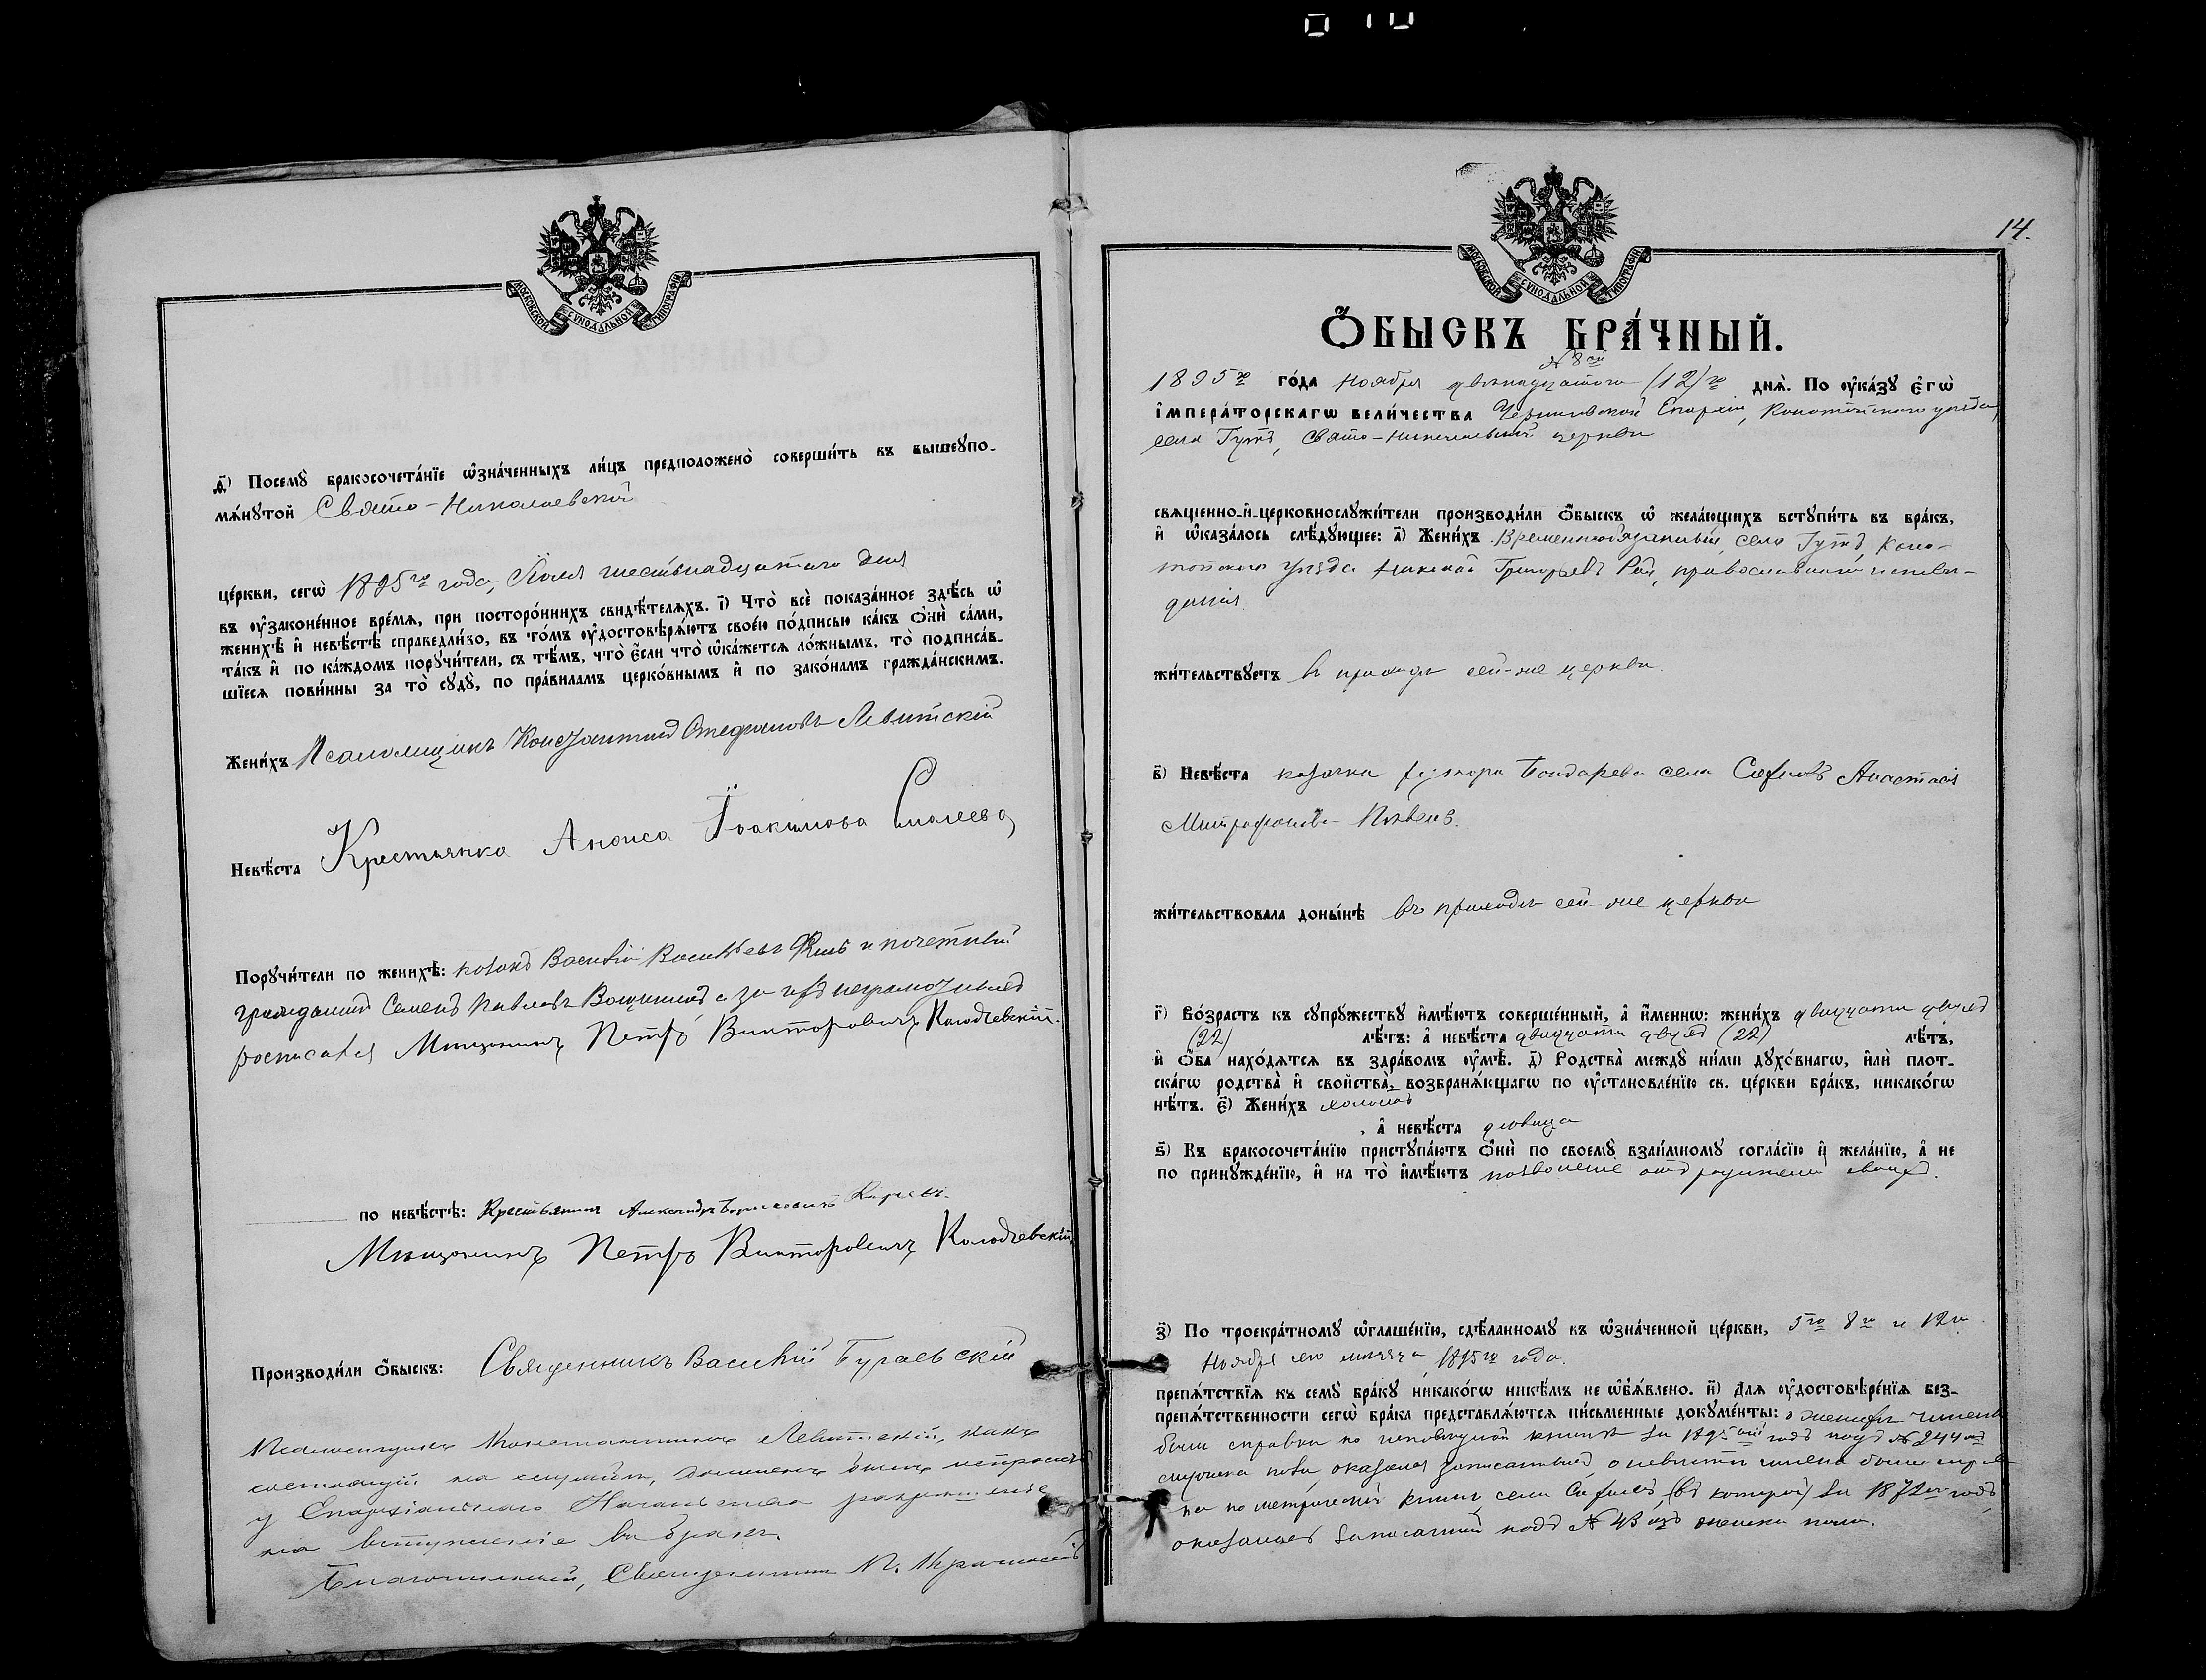 МОСКОВСКОЙ СѴНОДАЛЬНОЙ ТИПОГРАФІИ
ѳ҃) Посемꙋ̀ бракосочета́нїе ѡ҆зна́ченныхъ ли́цъ предположено̀ соверши́ть въ вышеꙋпо-
мѧ́нꙋтой Свято-Николаевской
це́ркви, сегѡ̀ 1895го года, Іюля шестьнадцатаго дня
въ ᲂу҆законе́нное вре́мѧ, при посторо́ннихъ свидѣ́телѧхъ. і҃) Что̀ всѐ пока́занное здѣ́сь ѡ҆
женихѣ̀ и҆ невѣ́стѣ справедли́во, въ то́мъ ᲂу҆достовѣрѧ́ютъ свое́ю по́дписью ка́къ ѻ҆нѝ са́ми,
та́къ и҆ по ка́ждомъ порꙋчи́тели, съ тѣ́мъ, что̀ є҆́сли что̀ ѡ҆ка́жетсѧ ло́жнымъ, то̀ подписа́в-
шїесѧ пови́нны за то̀ сꙋдꙋ̀, по пра́виламъ церко́внымъ и҆ по зако́намъ гражда́нскимъ.
Жени́хъ Псаломщикъ Константинъ Стефановъ Левитскій
Невѣ́ста Крестьянка Аноиса Іоакимова
Порꙋчи́тели по женихѣ̀: козакъ Василій Васильевъ и почетный
гражданинъ Семенъ Павловъ а за ихъ неграмотныхъ
росписался Мищанинъ Петръ Викторовичъ Колодчевскій.
по невѣ́стѣ: Крестьянинъ Александръ
Мищанинъ Петръ Викторовичъ Колодчевскій
Производи́ли ѻ҆́быскъ: Священникъ Василій Бугаевскій
Псаломщикъ Константинъ Левитскій, какъ
состоящій на службѣ, долженъ былъ испросить
у Епархіальнаго Начальства разрѣшеніе
на вступленіе въ бракъ.
Благочинный, Священникъ
14.
МОСКОВСКОЙ СѴНОДАЛЬНОЙ ТИПОГРАФІИ
Ѻ҆́БЫСКЪ БРА́ЧНЫЙ.
№ 8ой
1895го го́да Ноября двѣнадцатаго (12)го днѧ̀. По ᲂу҆ка́зꙋ є҆гѡ̀
і҆мпера́торскагѡ вели́чества Черниговской Епархіи, Конотопскаго уѣзда,
села Гутъ, Свято-Николаевской церкви
свѧщенно-и҆-церковнослꙋжи́тели производи́ли ѻ҆́быскъ ѡ҆ жела́ющихъ встꙋпи́ть въ бра́къ,
и҆ ѡ҆каза́лось слѣ́дꙋющее: а҃) Жени́хъ Временнообязанный, села Гутъ, Коно-
топскаго уѣзда Николай Григорьевъ Рой, православнаго исповѣ-
данія.
жи́тельствꙋетъ въ приходѣ сей-же церкви.
в҃) Невѣ́ста козачка хутора Бондарева села Анастасія
Митрофанова
жи́тельствовала доны́нѣ въ приходѣ сей-же церкви
г҃) Во́зрастъ къ сꙋпрꙋ́жествꙋ и҆мѣ́ютъ соверше́нный, а҆ и҆́меннѡ: жени́хъ двадцати двухъ
(22) лѣ́тъ: а҆ невѣ́ста двадцати двухъ (22) лѣ́тъ,
и҆ ѻ҆́ба нахо́дѧтсѧ въ здра́вомъ ᲂу҆мѣ̀. д҃) Родства̀ междꙋ̀ ни́ми дꙋхо́внагѡ, и҆лѝ плот-
ска́гѡ родства̀ и҆ свойства̀, возбранѧ́ющагѡ по ᲂу҆становле́нїю св. це́ркви бра́къ, никако́гѡ
нѣ́тъ. є҃) Жени́хъ холостъ
, а҆ невѣ́ста дѣвица
ѕ҃) Къ бракосочета́нїю пристꙋпа́ютъ ѻ҆нѝ по своемꙋ̀ взаи́мномꙋ согла́сїю и҆ жела́нїю, а҆ не
по принꙋжде́нїю, и҆ на то̀ и҆мѣ́ютъ позволеніе отъ родителей своихъ.
з҃) По троекра́тномꙋ ѡ҆глаше́нїю, сдѣ́ланномꙋ въ ѡ҆зна́ченной це́ркви, 5го 8го и 12го
Ноября сего мѣсяца 1895го года.
препѧ́тствїѧ къ семꙋ̀ бра́кꙋ никако́гѡ никѣ́мъ не ѡ҆бъѧ́влено. и҃) Длѧ ᲂу҆достовѣре́нїѧ без-
препѧ́тственности сегѡ̀ бра́ка представлѧ́ютсѧ пи́сьменные докꙋме́нты: о женихѣ чинена
была справка по исповѣдной книгѣ за 1895ый годъ подъ № 244мъ
оказался записаннымъ, о невѣстѣ чинена была справ-
ка по метрической книгѣ, села (въ которой) за 1872ой годъ,
оказалась записанной подъ № 43мъ женска пола.